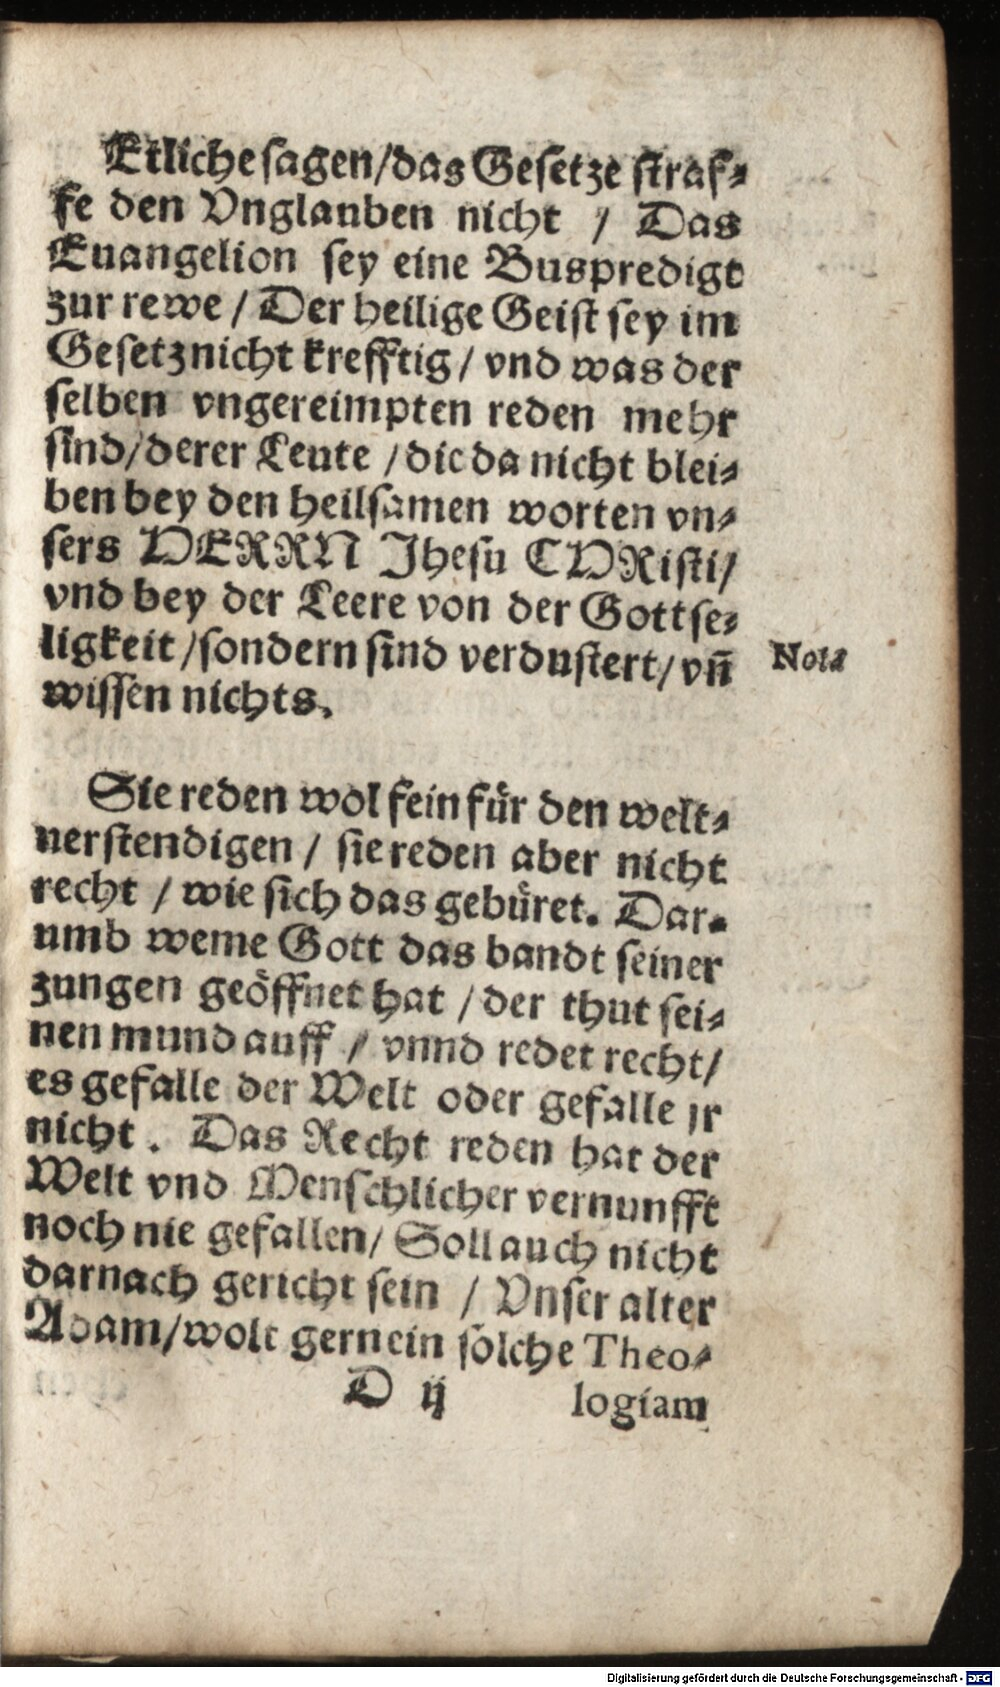 Etliche sagen/das Gesetze straf⸗
fe den Vnglauben nicht / Das
Euangelion sey eine Buspredigt
zur rewe / Der heilige Geist sey im
Gesetz nicht krefftig / vnd was der
selben vngereimpten reden mehr
sind/derer Leute / die da nicht blei⸗
ben bey den heilsamen worten vn⸗
sers HERRN Jhesu CHRisti/
vnd bey der Leere von der Gottse⸗
ligkeit /sondern sind verdustert/ vn̄
Nota
wissen nichts.
Sie reden wol fein für den welt⸗
uerstendigen / sie reden aber nicht
recht / wie sich das gebüret. Dar⸗
umb weme Gott das bandt seiner
zungen geöffnet hat / der thut sei⸗
nen mund auff / vnnd redet recht/
es gefalle der Welt oder gefalle jr
nicht . Das Recht reden hat der
Welt vnd Menschlicher vernunfft
noch nie gefallen/ Soll auch nicht
darnach gericht sein / Vnser alter
Adam/wolt gern ein solche Theo⸗
D ij logiam
Digitalisierung gefördert durch die Deutsche Forschungsgemeinschaft - DFG